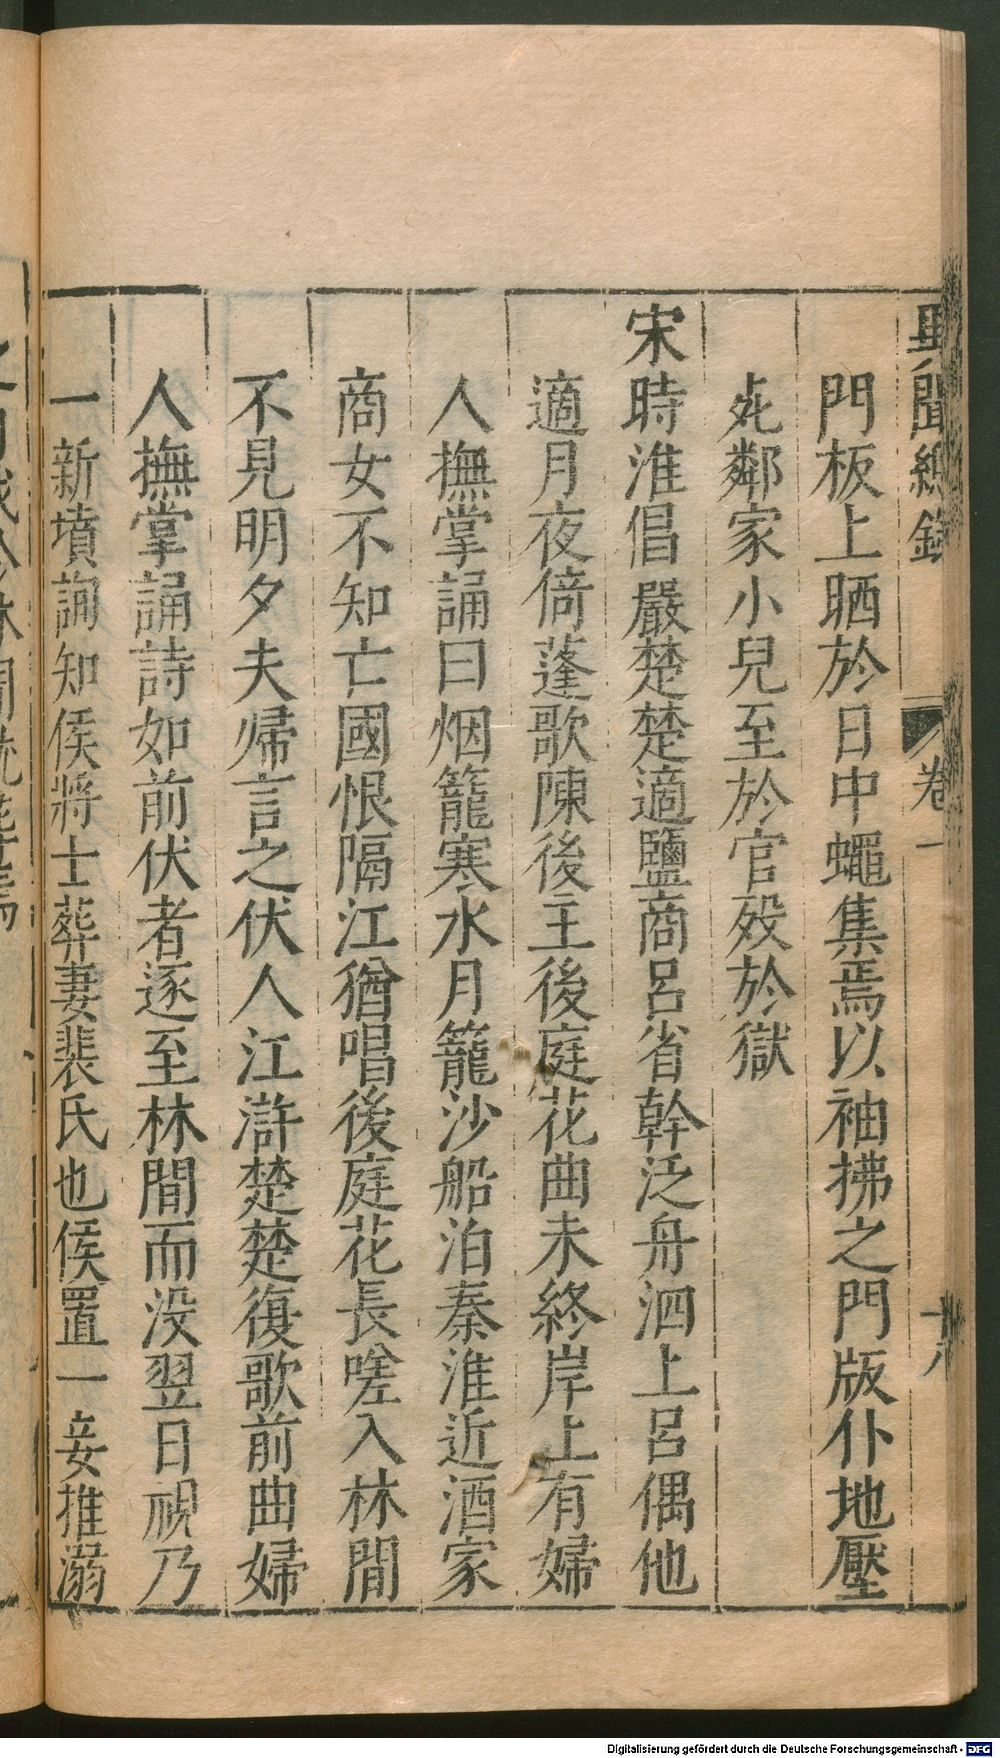 異聞總錄 卷一 十八
門板上晒於日中蠅集焉以袖拂之門版仆地壓
𣦸鄰家小兒至於官殁於獄
宋時淮倡嚴楚楚適鹽商呂省幹泛舟泗上呂偶他
適月夜倚蓬歌陳後主後庭花曲未終岸上有婦
人撫掌誦曰烟籠寒水月籠沙船泊秦淮近酒家
商女不知亡國恨隔江猶唱後庭花長嗟入林間
不見明夕夫帰言之伏人江滸楚楚復歌前曲婦
人撫掌誦詩如前伏者逐至林間而没翌日視乃
一新墳詢知侯將士葬妻裴氏也侯置一妾推溺
Digitalisierung gefördert durch die Deutsche Forschungsgemeinschaft - DFG